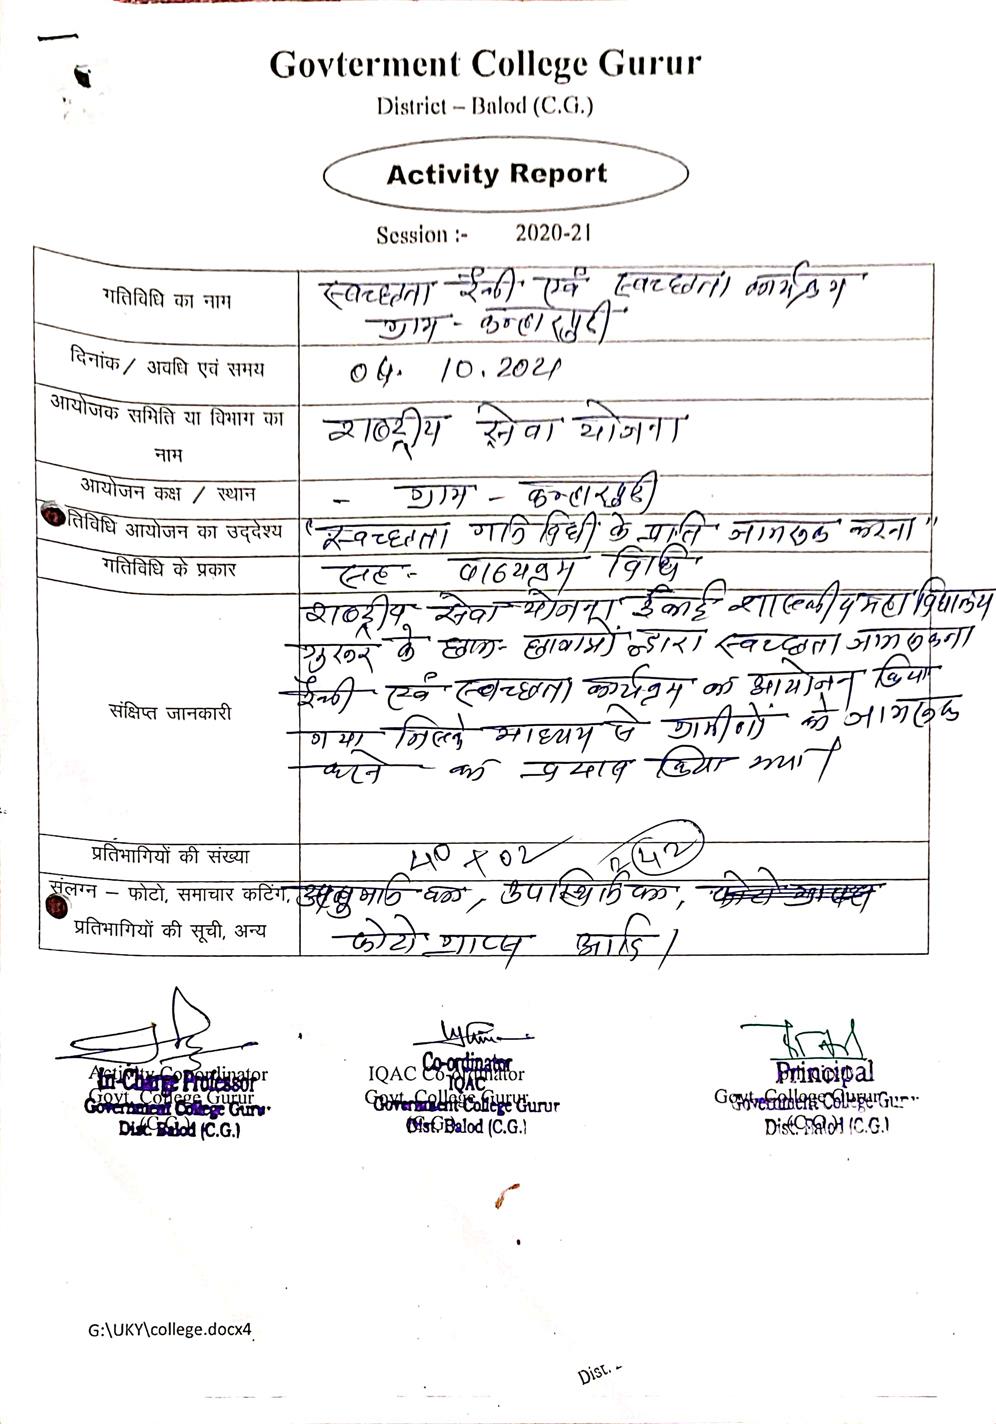 Govterment College Gurur
District – Balod (C.G.)
Activity Report
Session :- 2020-21
गतिविधि का नाम
स्वच्छता रैली एवं स्वच्छता कार्यक्रम
ग्राम - कन्हारपुरी
दिनांक/ अवधि एवं समय
04. 10. 2021
आयोजक समिति या विभाग का
नाम
राष्ट्रीय सेवा योजना
आयोजन कक्ष / स्थान
- ग्राम - कन्हारपुरी
तिविधि आयोजन का उद्देश्य
"स्वच्छता गतिविधी के प्रति जागरूक करना"
गतिविधि के प्रकार
सह- पाठ्यक्रम विधि
संक्षिप्त जानकारी
राष्ट्रीय सेवा योजना ईकाई शासकीय महाविद्यालय
गुरूर के छात्र- छात्राओं द्वारा स्वच्छता जागरूकता
रैली एवं स्वच्छता कार्यक्रम का आयोजन किया
गया जिसके माध्यम से ग्रामीणों को जागरूक
करने का प्रयास किया गया।
प्रतिभागियों की संख्या
40 + 02 = 42
संलग्न – फोटो, समाचार कटिंग,
प्रतिभागियों की सूची, अन्य
अनुमति पत्र, उपस्थिति पत्रक,
फोटोग्राफ्स आदि।
Activity Co-ordinator
Govt. College Gurur
(C.G.)
In-Charge Professor
Government College Gurur
Dist. Balod (C.G.)
IQAC Co-ordinator
Govt. College Gurur
(C.G.)
Co-ordinator
IQAC
Government College Gurur
Dist. Balod (C.G.)
Principal
Govt. College Gurur
(C.G.)
Principal
Government College Gurur
Dist. Balod (C.G.)
G:\UKY\college.docx4
Dist. -